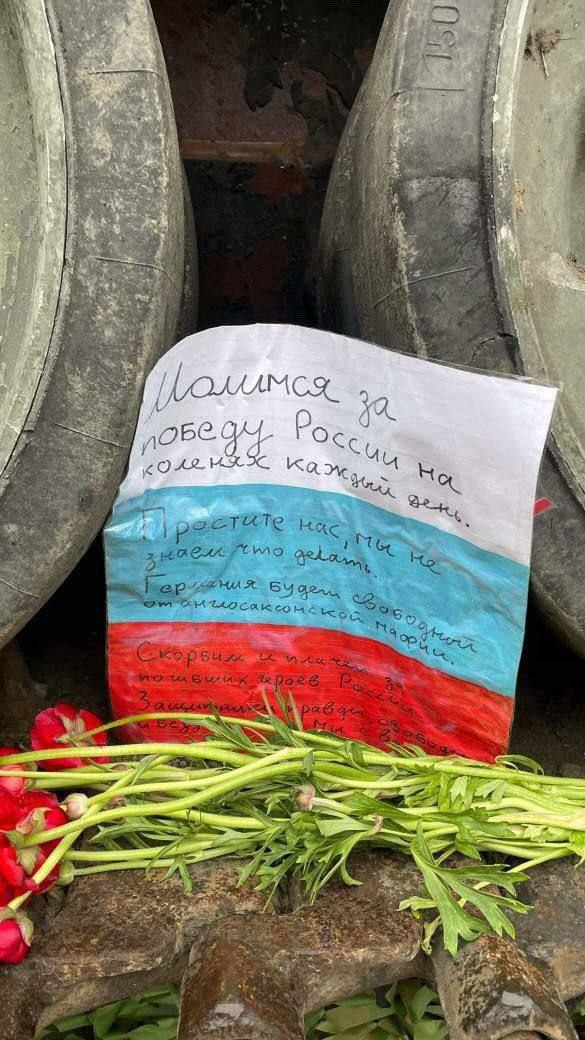 150
Молимся за
победу России на
коленях каждый день.
Простите нас, мы не
знаем что делать.
Германия будет свободной
от англосаксонской мафии.
Скорбим и плачем за
погибших героев России
Защитники правды, свободы
мы с в